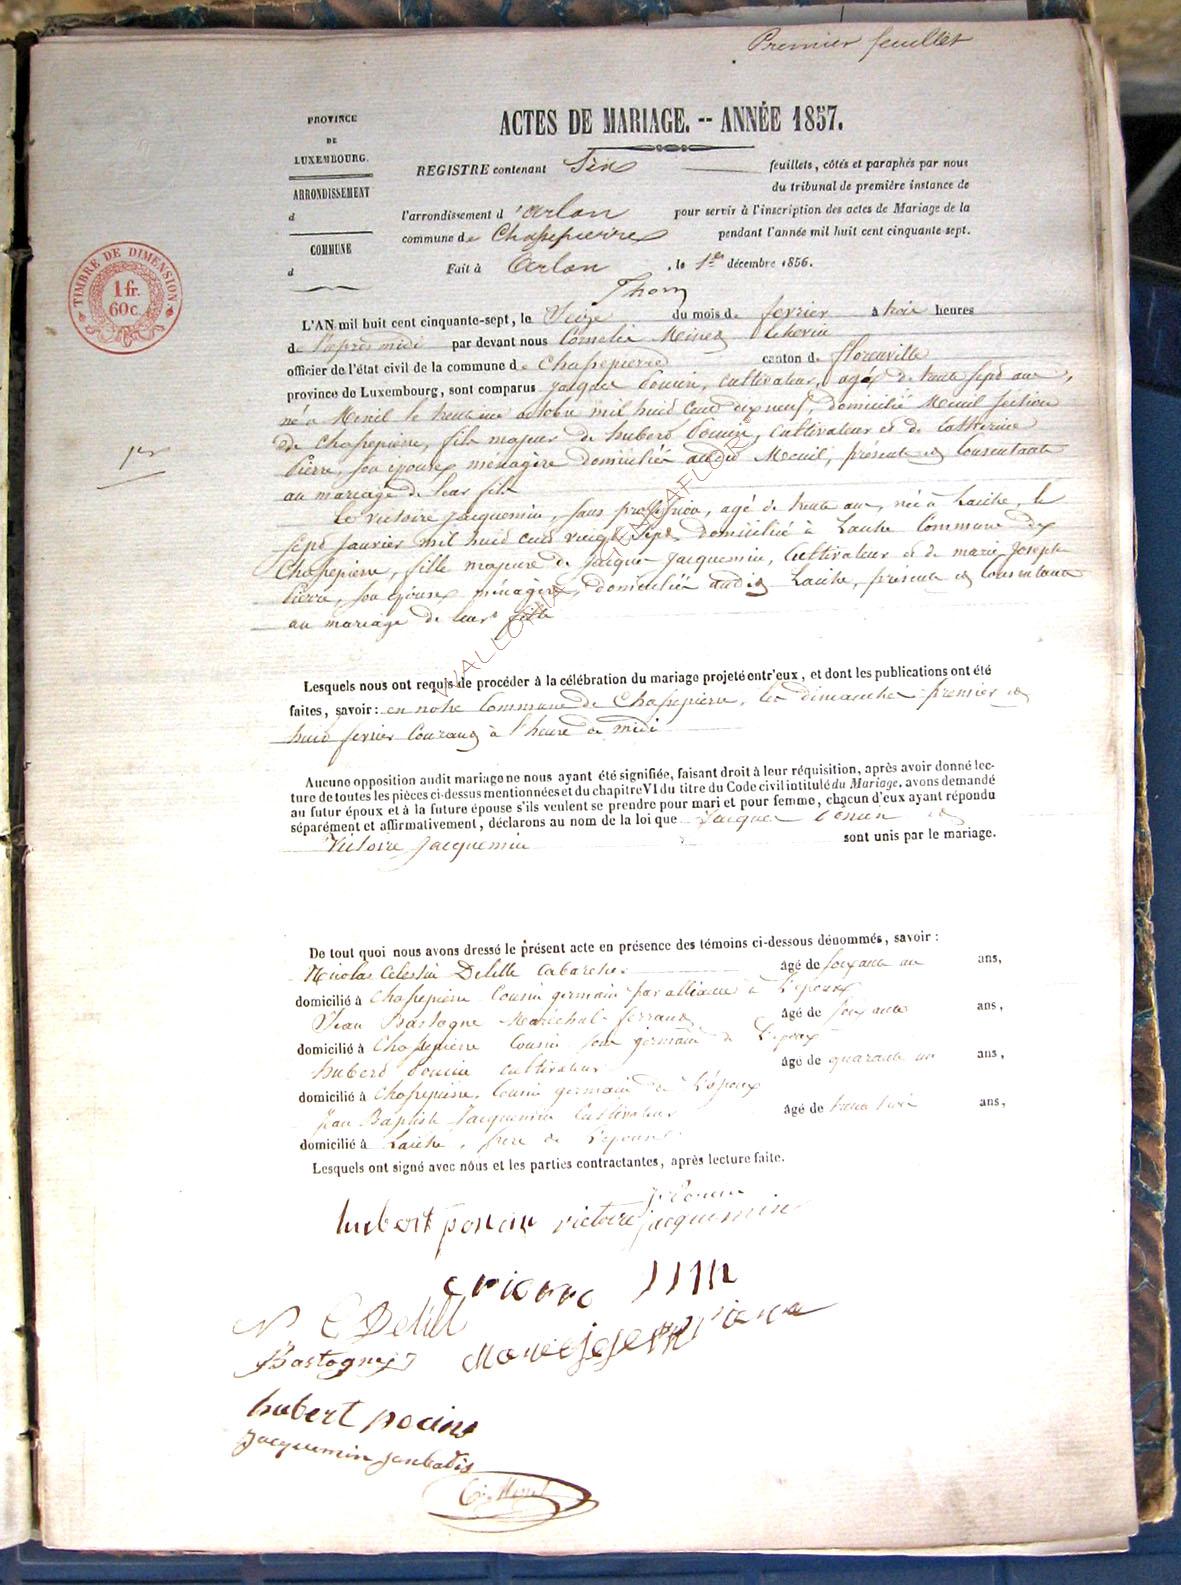 Premier feuillet
PROVINCE
DE
LUXEMBOURG.
ARRONDISSEMENT
d
COMMUNE
d
ACTES DE MARIAGE. -- ANNÉE 1857.
REGISTRE contenant Six feuillets, côtés et paraphés par nous
du tribunal de première instance de
l'arrondissement d'Arlon pour servir à l'inscription des actes de Mariage de la
commune de Chassepierre pendant l'année mil huit cent cinquante-sept.
Fait à Arlon, le 1er décembre 1856.
TIMBRE DE DIMENSION
1 fr.
60 c.
1er
L'AN mil huit cent cinquante-sept, le Seize du mois de fevrier à trois heures
de l'après midi par devant nous Echevin
officier de l'état civil de la commune de Chassepierre canton de florenville
province de Luxembourg, sont comparus Jacques Poncin, cultivateur, agé de trente sept ans,
né à Menil le trente un octobre mil huit cent dix neuf, domicilié Menil section
de Chassepierre, fils majeur de hubert Poncin, cultivateur et de Catherine
Pierre, son épouse ménagère domiciliés audit Menil, présents et consentants
au mariage de leur fils
Et victoire Jacquemin, sans profession, agé de trente ans, née à Laiche, le
sept janvier mil huit cent vingt sept domicilié à Laiche Commune de
Chassepierre, fille majeure de Jacques Jacquemin, Cultivateur et de marie Joseph
Pierre, son epouse ménagère, domiciliés audit Laiche, présents et consentants
au mariage de leur fille
Lesquels nous ont requis de procéder à la célébration du mariage projeté entr'eux, et dont les publications ont été
faites, savoir: en notre Commune de Chassepierre, les dimanches premier et
huit fevrier courant à l'heure de midi
Aucune opposition audit mariage ne nous ayant été signifiée, faisant droit à leur réquisition, après avoir donné lec-
ture de toutes les pièces ci-dessus mentionnées et du chapitre VI du titre du Code civil intitulé du Mariage, avons demandé
au futur époux et à la future épouse s'ils veulent se prendre pour mari et pour femme, chacun d'eux ayant répondu
séparément et affirmativement, déclarons au nom de la loi que Jacques Poncin et
Victoire Jacquemin sont unis par le mariage.
De tout quoi nous avons dressé le présent acte en présence des témoins ci-dessous dénommés, savoir :
Nicolas Celestin Delille Cabaretier âgé de soixante un ans,
domicilié à Chassepierre Cousin germain par alliance à l'epoux
Jean Bastogne Maréchal ferrant âgé de soixante ans,
domicilié à Chassepierre Cousin germain de l'epoux
hubert Poncin cultivateur âgé de quarante un ans,
domicilié à Chassepierre, Cousin germain de l'epoux
Jean Baptiste Jacquemin Cultivateur âgé de trente trois ans,
domicilié à Laiche, frere de l'epouse
Lesquels ont signé avec nôus et les parties contractantes, après lecture faite.
J. Poncin
hubert poncin victoire jacquemin
N C Delille
Marie joseph pierre
Bastogne J
hubert poncin
Jacquemin janbatis
WALLONIA TERRAFLOR